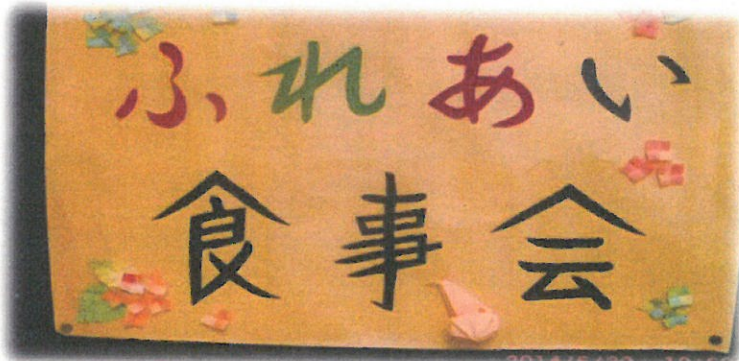 ふれあい
食事会